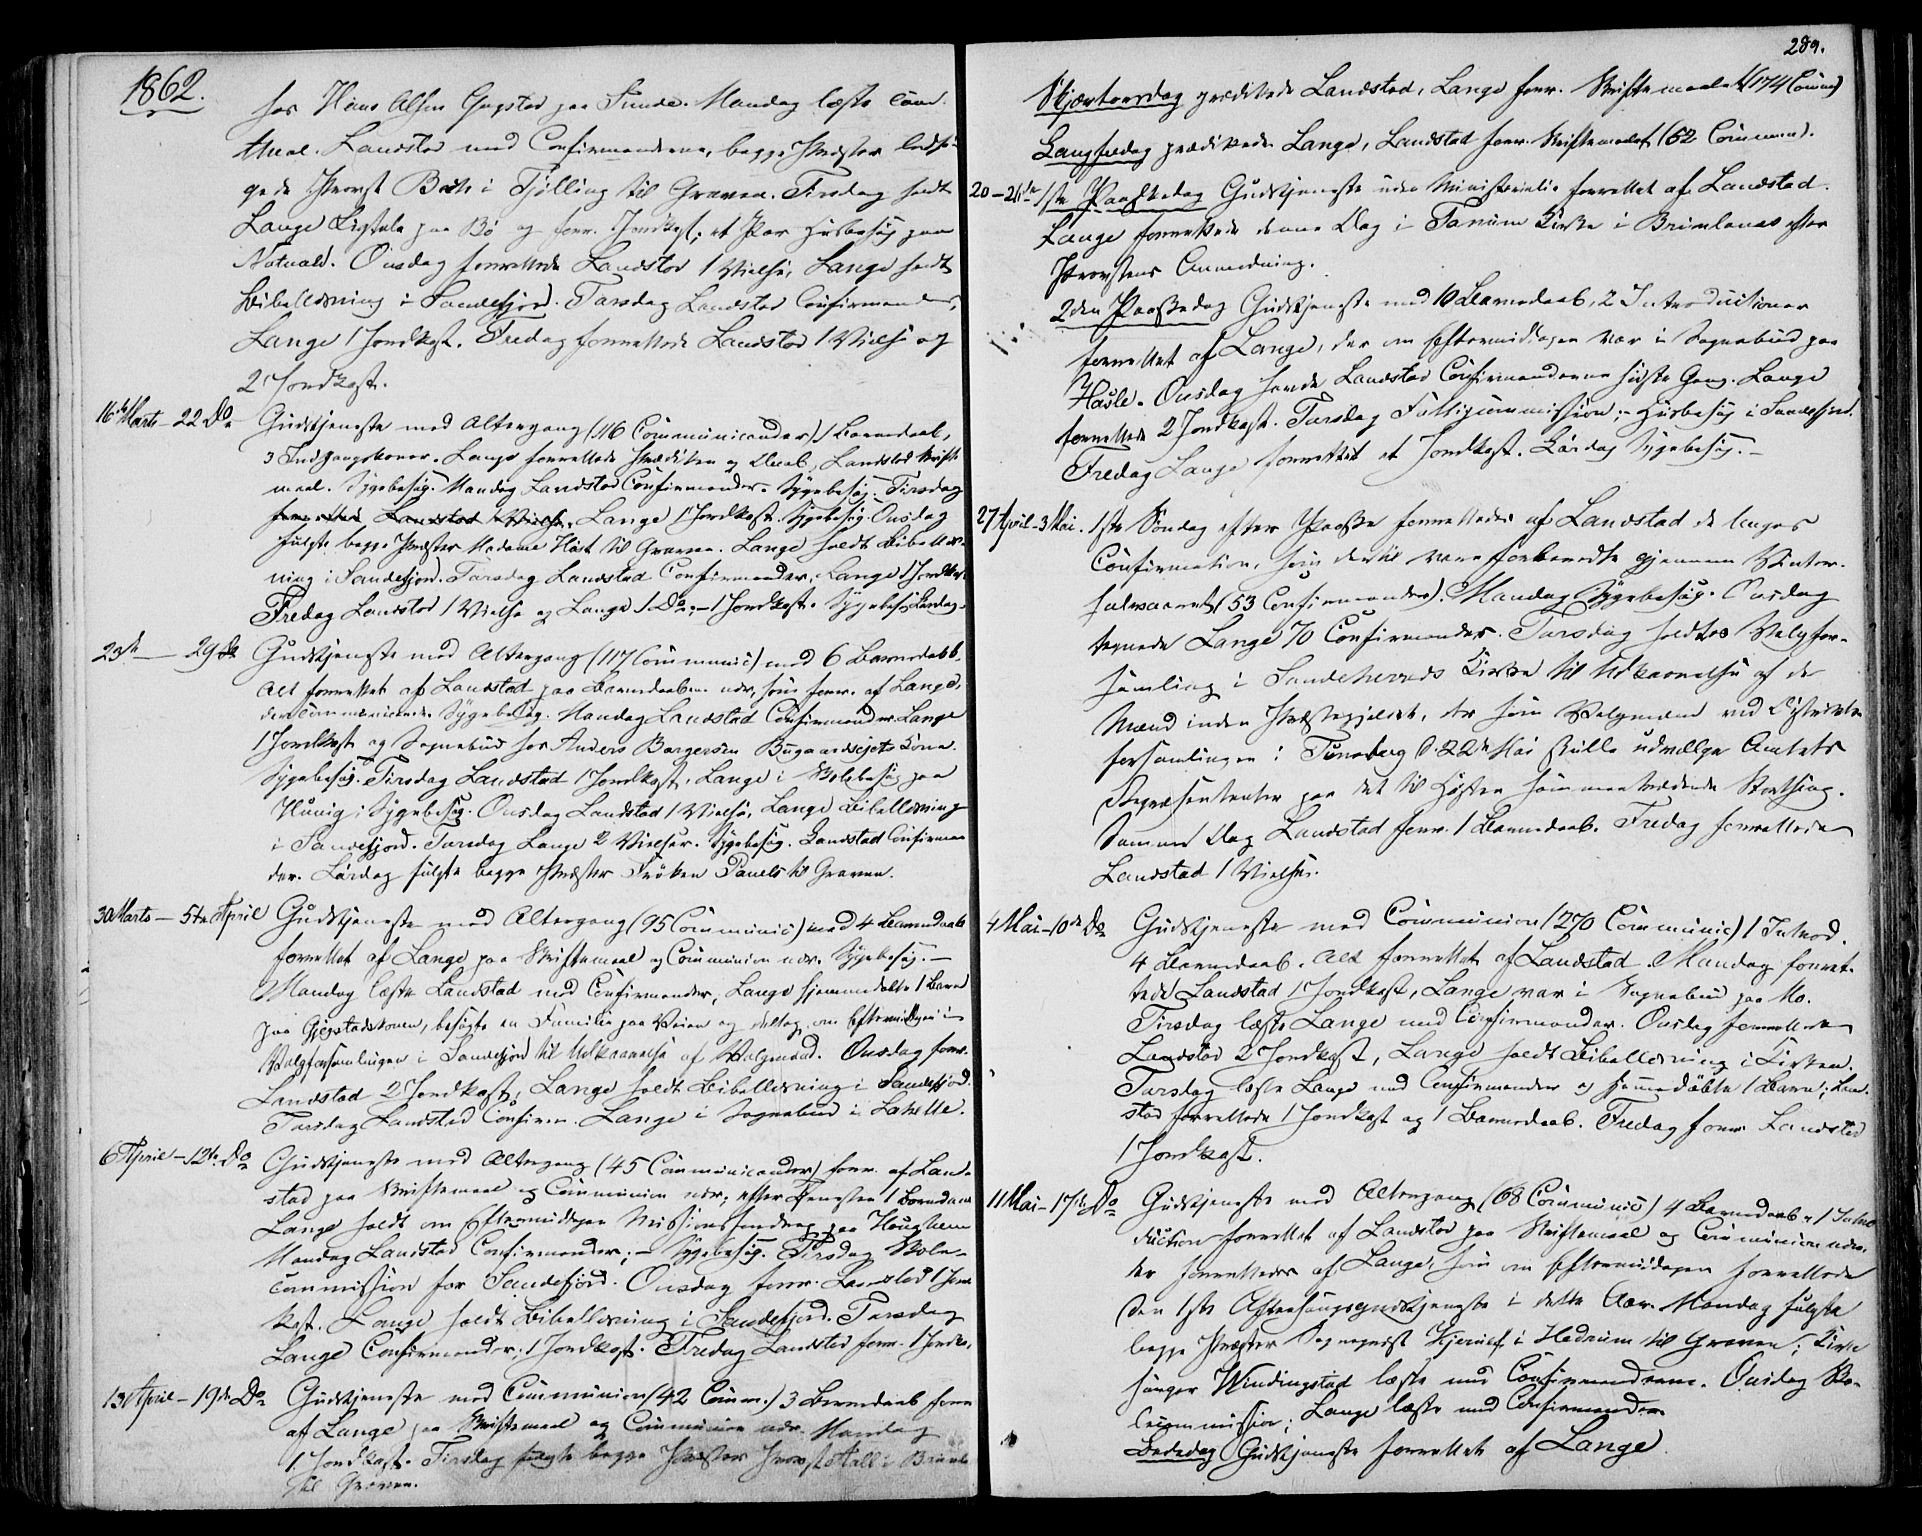 1862.
hos Hans Olsen Gogstad paa Sunde. Mandag læste Cand.
theol. Landstad med Confirmanderne, begge Præster ledsa-
gede Provst Bech i Tjølling til Graven. Tirsdag holdt
Lange Ligtale paa Bø og forr. Jordkast; et Par Husbesøg paa
Natvald. Onsdag forrettede Landstad 1 Vielse, Lange holdt
Bibellæsning i Sandefjord. Torsdag Landstad Confirmander,
Lange 1 Jordkast. Fredag forrettede Landstad 1 Vielse og
2 Jordkast.
16de Marts – 22 Do Gudstjeneste med Altergang (116 Communicander) 1 Barnedaab,
3 Indgangskoner. Lange forrettede Prædiken og Daab, Landstad Skrifte-
maal. Sygebesøg. Mandag Landstad Confirmander. Sygebesøg. Tirsdag
forrettede Landstad 1 Vielse. Lange 1 Jordkast. Sygebesøg. Onsdag
fulgte begge Præster Madame Høst til Graven. Lange holdt Bibellæs-
ning i Sandefjord. Torsdag Landstad Confirmander, Lange 1 Jordkast.
Fredag Landstad 1 Vielse og Lange 1 Do; – 1 Jordkast. Sygebesøg Lørdag.
23de – 29de Gudstjeneste med Altergang (117 Communic) med 6 Barnedaab,
Alt forrettet af Landstad paa Barnedaaben nær, som forr. af Lange,
der communicerede. Sygebesøg. Mandag Landstad Confirmander. Lange
1 Jordkast og Sognebud hos Anders Borgersen Bugaardsejets Kone.
Sygebesøg. Tirsdag Landstad 1 Jordkast, Lange i Skolebesøg paa
Sygebesøg. Onsdag Landstad 1 Vielse, Lange Bibellæsning
i Sandefjord. Torsdag Lange 2 Vielser. Sygebesøg. Landstad Confirman-
der. Lørdag fulgte begge Præster Frøken Panels til Graven.
30 Marts – 5te April Gudstjeneste med Altergang (95 Communic) med 4 Barnedaab
forrettet af Lange paa Skriftemaal og Communion nær. Sygebesøg. –
Mandag læste Landstad med Confirmander, Lange hjemmedøbte 1 Barn
paa Gjogstadskoven, besøgte en Familie paa Veien og deltog om Eftermiddagen i
Valgforsamlingen i Sandefjord til Udkaarelse af Valgmænd. Onsdag forr.
Landstad 2 Jordkast, Lange holdt Bibellæsning i Sandefjord.
Torsdag Landstad Confirm. Lange i Sognebud i Lahelle.
6 April – 12te Do Gudstjeneste med Altergang (45 Communicander) forr. af Land-
stad paa Skriftemaal og Communion nær; efter Tjenesten 1 Barnedaab
Lange holdt om Eftermiddagen Missionsforedrag paa Haughem
Mandag Landstad Confirmander; – Sygebesøg. Tirsdag Skole-
commission for Sandefjord. Onsdag forr. Landstad 1 Jord-
kast. Lange holdt Bibellæsning i Sandefjord. Torsdag
Lange Confirmander; 1 Jordkast. Fredag Landstad forr. 1 Jordk.
13 April – 19de Do Gudstjeneste med Communion (42 Comm.) 3 Barnedaab forr.
af Lange paa Skriftemaal og Communion nær. Mandag
1 Jordkast. Tirsdag fulgte begge Præster Provst Hall i Brunla
til Graven.
289.
Skjærtorsdag prædikede Landstad, Lange forr. Skriftemaalet (174 Comm)
Langfredag prædikede Lange, Landstad forr. Skriftemaalet (52 Commun).
20–26de 1ste Paaskedag Gudstjeneste uden Ministerialia forrettet af Landstad.
Lange forrettede denne Dag i Tanum Kirke i Brunlanæs efter
Provstens Anmodning.
2den Paaskedag Gudstjeneste med 10 Barnedaab, 2 Introductioner
forrettet af Lange, der om Eftermiddagen var i Sognebud paa
Hasle. Onsdag havde Landstad Confirmanderne sidste Gang. Lange
forrettede 2 Jordkast. Torsdag Fattigcommission; – Husbesøg i Sandefjord.
Fredag Lange forrettet et Jordkast. Lørdag Sygebesøg. –
27 April – 3 Mai. 1ste Søndag efter Paaske forrettedes af Landstad de Unges
Confirmation, som dertil vare forberedte gjennem Vinter-
halvaaret (53 Confirmander). Mandag Sygebesøg. Onsdag
tegnede Lange 70 Confirmander. Torsdag holdtes Valgfor-
samling i Sandeherreds Kirke til Udkaarelse af de
Mænd inden Præstegjeldet, der som Valgmænd ved Districts-
forsamlingen i Tønsberg d. 22de Mai skulle udvælge Amtets
Repræsentanter paa det til Høsten sammentrædende Storthing.
Samme Dag Landstad forr. 1 Barnedaab. Fredag forrettede
Landstad 1 Vielse.
4 Mai – 10de Do Gudstjeneste med Communion (270 Communic) 1 Introd.
4 Barnedaab. Alt forrettet af Landstad. Mandag forret-
tede Landstad 1 Jordkast, Lange var i Sognebud paa Mo.
Tirsdag læste Lange med Confirmander. Onsdag forrettede
Landstad 2 Jordkast, Lange holdt Bibellæsning i Kirken.
Torsdag læste Lange med Confirmander og hjemmedøbte 1 Barn; Land-
stad forrettede 1 Jordkast og 1 Barnedaab. Fredag forr. Landstad
1 Jordkast.
11 Mai – 17de Do Gudstjeneste med Altergang (68 Communic) 4 Barnedaab, 1 Intro-
duction forrettet af Landstad paa Skriftemaal og Communion nær,
der forrettedes af Lange, som om Eftermiddagen forrettede
den 1ste Aftensangsgudstjeneste i dette Aar. Mandag fulgte
begge Præster Sognepræst Hjerulf i Hedrum til Graven; Kirke
sanger Windingstad læste med Confirmanderne. Onsdag Sko-
lecommission; Lange læste med Confirmander
Bededag Gudstjeneste forrettet af Lange